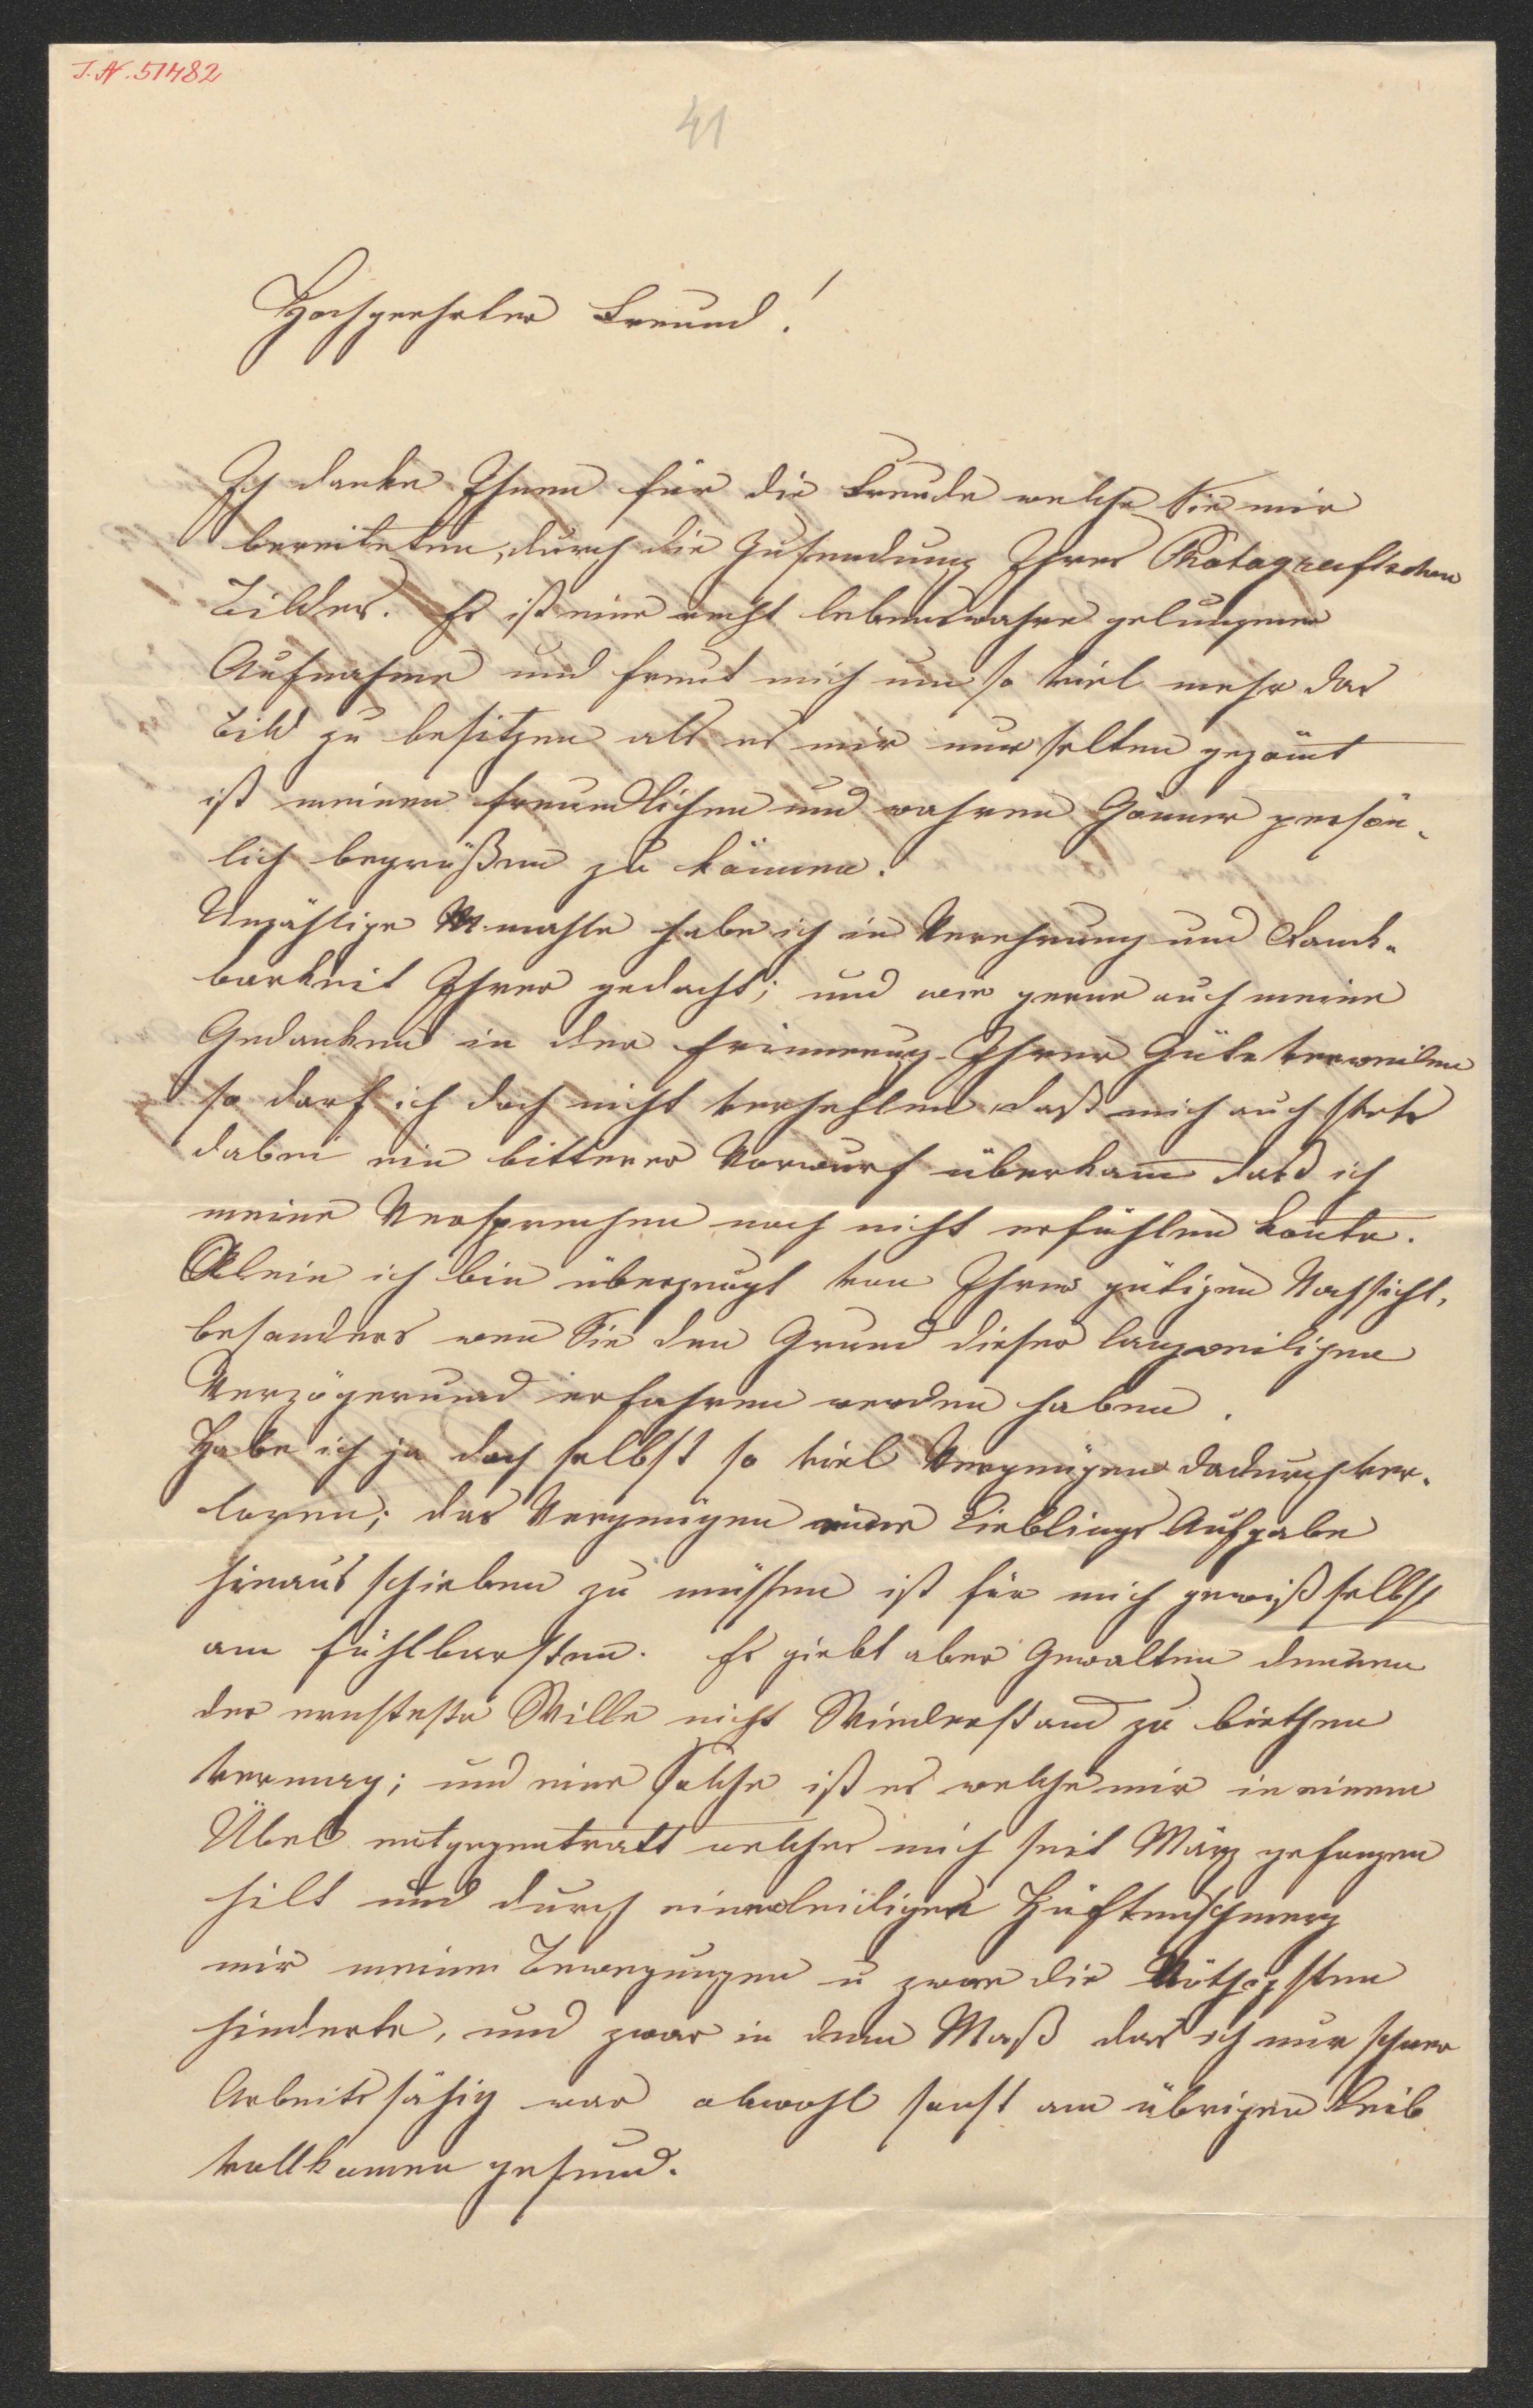 I.N. 51482
41
Hochgeehrter Freund!
Ich danke Ihnen für die Freude welche Sie mir
bereiteten, durch die Zusendung Ihres Photografischen
Bildes. Es ist eine recht lebenswahre gelungene
Aufnahme und freut mich um so viel mehr das
Bild zu besitzen als es mir nur selten gegönnt
ist meinen freundlichen und wahren Gönner persön-
lich begrüßen zu können.
Unzählige Mahle habe ich in Verehrung und Dank-
barkeit Ihrer gedacht; und wie gerne auch meine
Gedanken in der Erinnerung Ihrer Güte verweilen
so darf ich doch nicht verhehlen, daß mich auch stets
dabei ein bitterer Vorwurf überkam daß ich
meine Versprechen noch nicht erfühlen konte.
Allein ich bin überzeugt von Ihrer gütigen Nachsicht,
besonders wen Sie den Grund dieser langweiligen
Verzögerund erfahren werden haben.
Habe ich ja doch selbst so viel Vergnügen dadurch ver-
loren; das Vergnügen einer Lieblings Aufgabe
hinaus schieben zu müssen ist für mich gewiß selbst
am fühlbarsten. Es giebt aber Gewalten dennen
der ernsteste Wille nicht Wiederstand zu biethen
vermag; und eine Solche ist es welche mir in einem
Übel entgegentratt welches mich seit März gefangen
hilt und durch einen leidigen Hüftenschmerz
mir meine Bewegungen u zwar die Nöthigsten
hinderte, und zwar in dem Maß das ich nur schwer
Arbeitsfähig war obwohl sonst am übrigen Leib
vollkomen gesund.